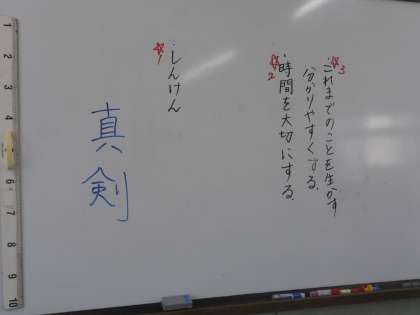 ・これまでのことを生かす
☆3
分かりやすくする。
・時間を大切にする。
☆2
・しんけん
☆1
真剣
1
2
3
4
6
7
8
9
10